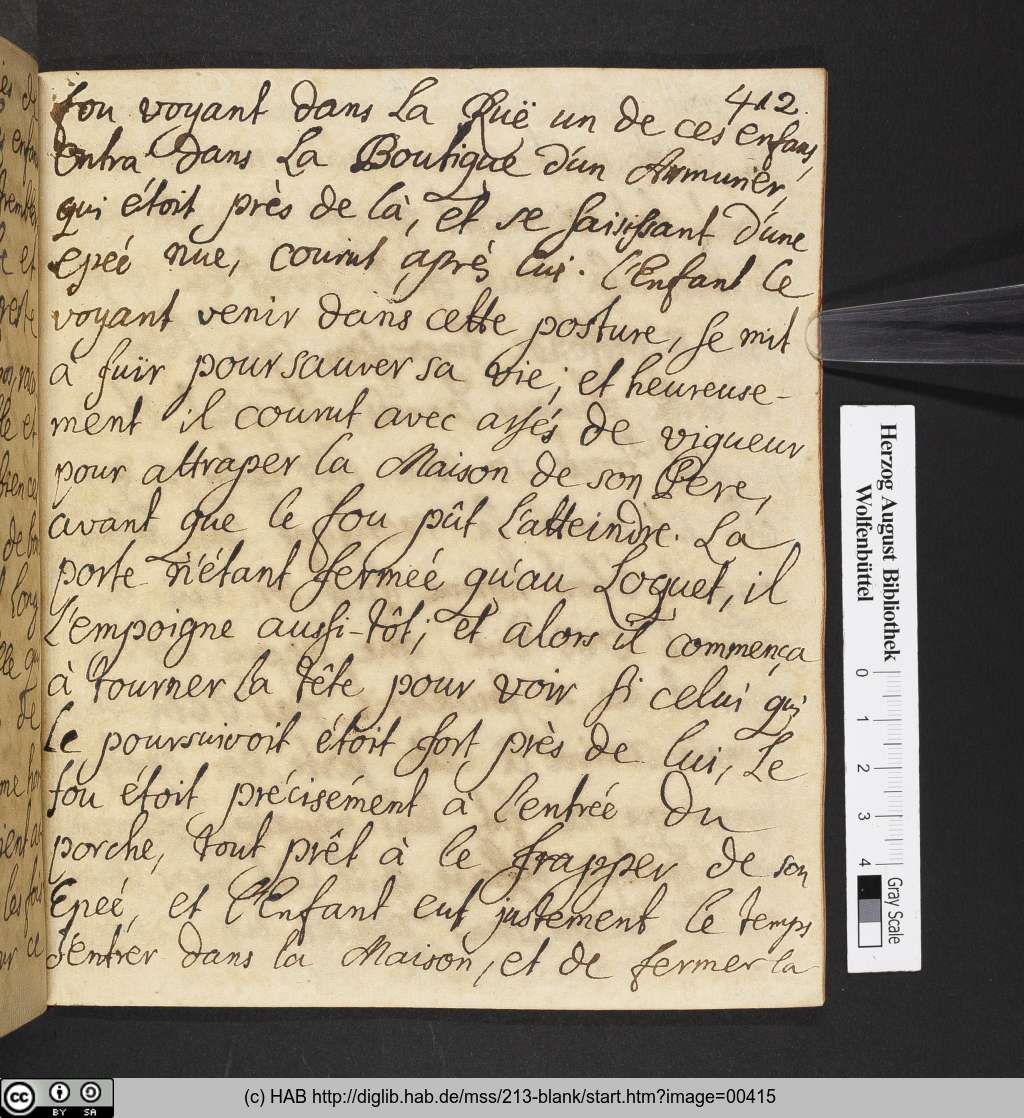 412.
fou voyant dans la Ruë un de ces enfans,
entra dans la Boutique d'un Armurier,
qui étoit près de là, et se saisissant d'une
epeé nue, courut après lui. l'Enfant le
voyant venir dans cette posture, se mit
a fuïr pour sauver sa vie; et heureuse-
ment il courut avec assés de vigueur
pour attraper la Maison de son Pere,
avant que le fou pût l'atteindre. La
porte n'étant fermeé qu'au Loquet, il
l'empoigne aussi-tôt; et alors il commença
à tourner la tête pour voir si celui qui
le poursuivoit étoit fort près de lui, Le
fou étoit précisément à l'entrée du
porche, tout prêt à le frapper de son
Epeé, et l'Enfant eut justement le temps
d'entrer dans la Maison, et de fermer la
Herzog August Bibliothek
Wolfenbüttel
0 1 2 3 4
Gray Scale
cc BY SA
(c) HAB http://diglib.hab.de/mss/213-blank/start.htm?image=00415